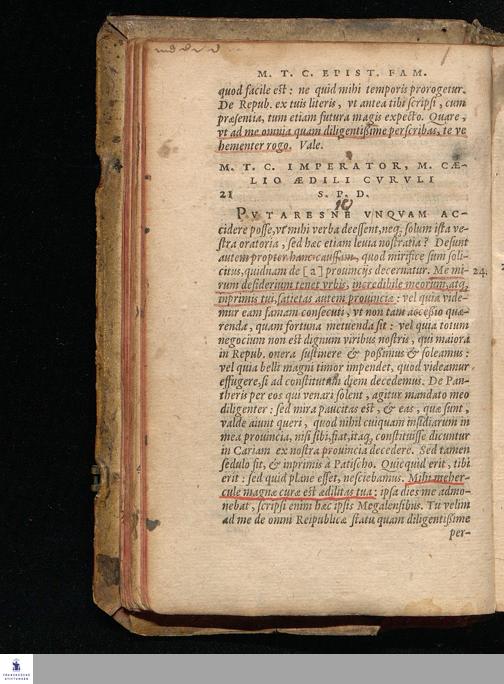 M. T. C. EPIST. FAM.
quod facile est: ne quid mihi temporis prorogetur.
De Repub. ex tuis literis, vt antea tibi scripsi, cum
præsentia, tum etiam futura magis expecto. Quare,
vt ad me omnia quam diligentißime perscribas, te ve
hementer rogo. Vale.
M. T. C. IMPERATOR, M. CÆ-
LIO ÆDILI CVRVLI
21 S. P. D.
10
PVTARESNE VNQVAM AC-
cidere posse, vt mihi verba deessent, neq; solum ista ve-
stra oratoria, sed hæc etiam leuia nostratia? Desunt
autem propter hanc caussam, quod mirifice sum soli-
citus, quidnam de [2] prouincijs decernatur. Me mi-
rum desiderium tenet vrbis, incredibile meorum, atq;
inprimis tui, satietas autem prouinciæ: vel quia vide-
mur eam famam consecuti, vt non tam accessio quæ-
renda, quam fortuna metuenda sit: vel quia totum
negocium non est dignum viribus nostris, qui maiora
in Repub. onera sustinere & poßimus & soleamus:
vel quia belli magni timor impendet, quod videamur
effugere, si ad constitutam diem decedemus. De Pan-
theris per eos qui venari solent, agitur mandato meo
diligenter: sed mira paucitas est, & eas, quæ sunt,
valde aiunt queri, quod nihil cuiquam insidiarum in
mea prouincia, nisi sibi, fiat, itaq; constituisse dicuntur
in Cariam ex nostra prouincia decedere. Sed tamen
sedulo fit, & inprimis à Patischo. Quicquid erit, tibi
erit: sed quid plane esset, nesciebamus. Mihi meher-
cule magnæ curæ est ædilitas tua: ipsa dies me admo-
nebat, scripsi enim hæc ipsis Megalensibus. Tu velim
ad me de omni Reipublicæ statu quam diligentißime
per-
24.
FRANCKESCHE
STIFTUNGEN